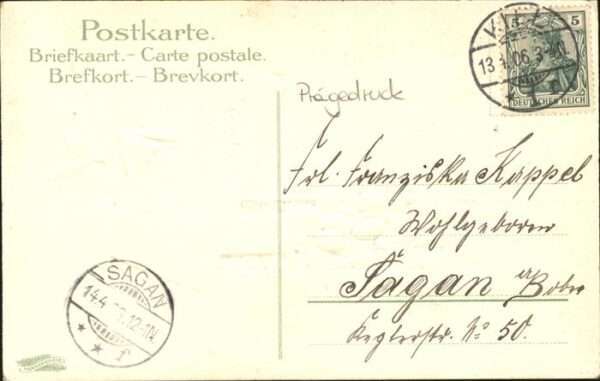 Postkarte.
Briefkaart.- Carte postale.
Brefkort.- Brevkort.
Prägedruck
5 5
DEUTSCHES REICH
13.4.06.3-4N.
* f
Frl. Franziska Kappel
Wohlgeboren
Sagan a/Bober
Keplerstr. No 50.
SAGAN
14.4. 12-1N.
* * f